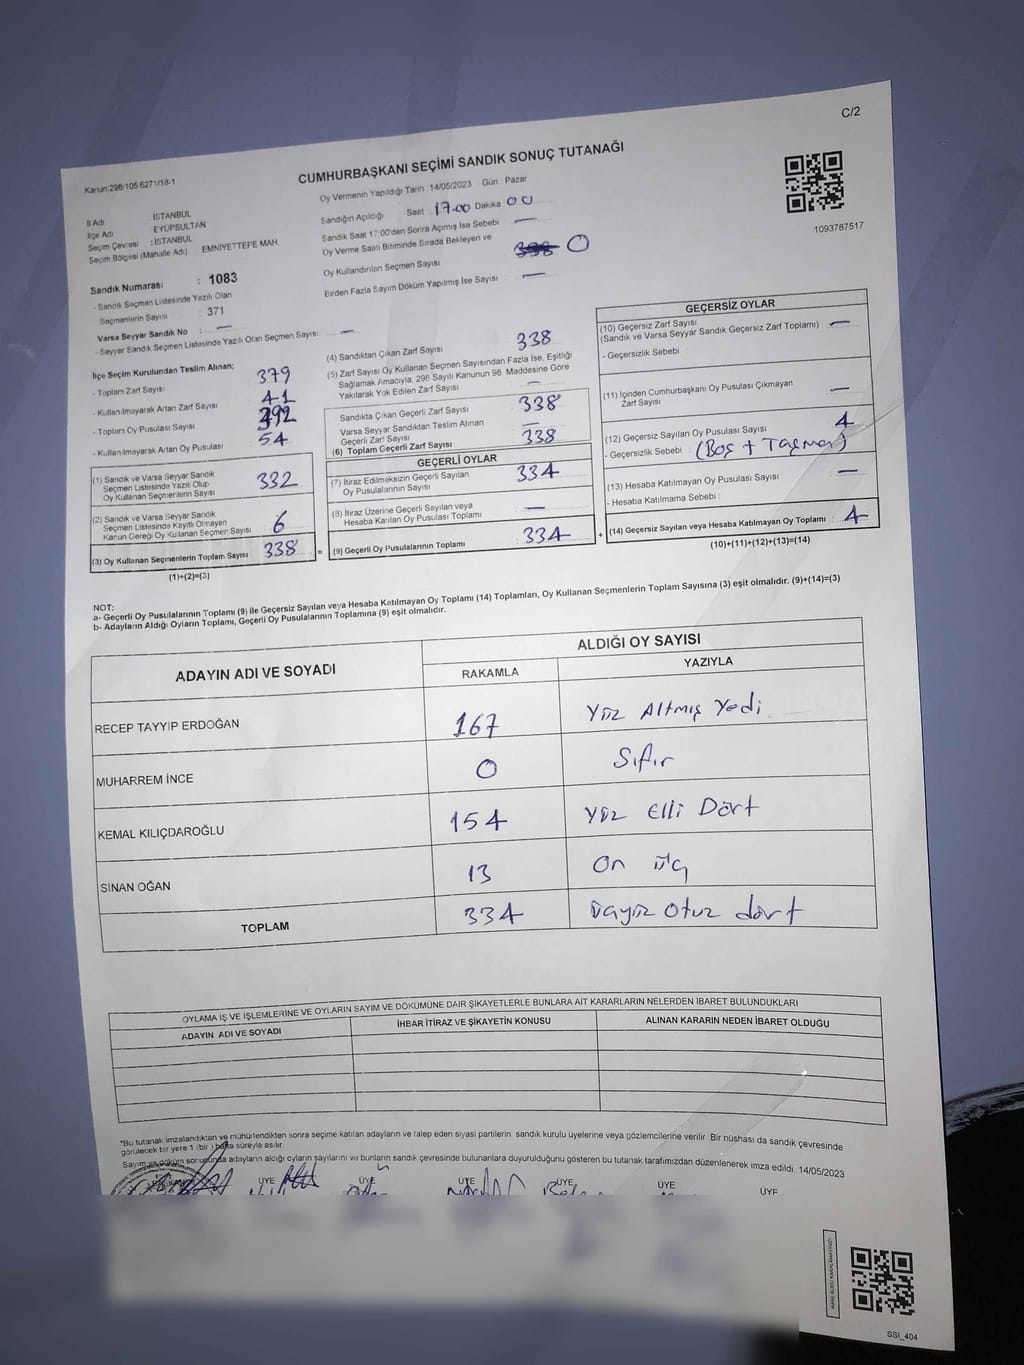 C/2
Kanun:298/105 6271/18-1
CUMHURBAŞKANI SEÇİMİ SANDIK SONUÇ TUTANAĞI
Oy Vermenin Yapıldığı Tarih : 14/05/2023 Gün : Pazar
1093787517
İl Adı : İSTANBUL
İlçe Adı : EYÜPSULTAN
Seçim Çevresi : İSTANBUL
Seçim Bölgesi (Mahalle Adı) EMNİYETTEPE MAH.
Sandık Numarası : 1083
- Sandık Seçmen Listesinde Yazılı Olan
Seçmenlerin Sayısı : 371
Varsa Seyyar Sandık No : —
- Seyyar Sandık Seçmen Listesinde Yazılı Olan Seçmen Sayısı : —
Sandığın Açıldığı Saat 17.00 Dakika 00
Sandık Saat 17:00'den Sonra Açılmış İse Sebebi —
Oy Verme Saati Bitiminde Sırada Bekleyen ve
Oy Kullandırılan Seçmen Sayısı 0
Birden Fazla Sayım Döküm Yapılmış İse Sayısı : —
İlçe Seçim Kurulundan Teslim Alınan;
- Toplam Zarf Sayısı 379
- Kullanılmayarak Artan Zarf Sayısı 41
- Toplam Oy Pusulası Sayısı 392
- Kullanılmayarak Artan Oy Pusulası 54
(1) Sandık ve Varsa Seyyar Sandık
Seçmen Listesinde Yazılı Olup
Oy Kullanan Seçmenlerin Sayısı 332
(2) Sandık ve Varsa Seyyar Sandık
Seçmen Listesinde Kayıtlı Olmayan
Kanun Gereği Oy Kullanan Seçmen Sayısı 6
(3) Oy Kullanan Seçmenlerin Toplam Sayısı 338 =
(1)+(2)=(3)
(4) Sandıktan Çıkan Zarf Sayısı 338
(5) Zarf Sayısı Oy Kullanan Seçmen Sayısından Fazla İse, Eşitliği
Sağlamak Amacıyla, 298 Sayılı Kanunun 98. Maddesine Göre
Yakılarak Yok Edilen Zarf Sayısı —
Sandıkta Çıkan Geçerli Zarf Sayısı : 338
Varsa Seyyar Sandıktan Teslim Alınan
Geçerli Zarf Sayısı : —
(6) Toplam Geçerli Zarf Sayısı : 338
GEÇERLİ OYLAR
(7) İtiraz Edilmeksizin Geçerli Sayılan
Oy Pusulalarının Sayısı : 334
(8) İtiraz Üzerine Geçerli Sayılan veya
Hesaba Katılan Oy Pusulası Toplamı : —
(9) Geçerli Oy Pusulalarının Toplamı : 334 +
GEÇERSİZ OYLAR
(10) Geçersiz Zarf Sayısı
(Sandık ve Varsa Seyyar Sandık Geçersiz Zarf Toplamı) : —
- Geçersizlik Sebebi :
(11) İçinden Cumhurbaşkanı Oy Pusulası Çıkmayan
Zarf Sayısı : —
(12) Geçersiz Sayılan Oy Pusulası Sayısı : 4
- Geçersizlik Sebebi : (Boş + Taşma)
(13) Hesaba Katılmayan Oy Pusulası Sayısı : —
- Hesaba Katılmama Sebebi :
(14) Geçersiz Sayılan veya Hesaba Katılmayan Oy Toplamı : 4
(10)+(11)+(12)+(13)=(14)
NOT:
a- Geçerli Oy Pusulalarının Toplamı (9) ile Geçersiz Sayılan veya Hesaba Katılmayan Oy Toplamı (14) Toplamları, Oy Kullanan Seçmenlerin Toplam Sayısına (3) eşit olmalıdır. (9)+(14)=(3)
b- Adayların Aldığı Oyların Toplamı, Geçerli Oy Pusulalarının Toplamına (9) eşit olmalıdır.
ADAYIN ADI VE SOYADI ALDIĞI OY SAYISI
RAKAMLA YAZIYLA
RECEP TAYYİP ERDOĞAN 167 Yüz Altmış Yedi
MUHARREM İNCE 0 Sıfır
KEMAL KILIÇDAROĞLU 154 Yüz Elli Dört
SİNAN OĞAN 13 On üç
TOPLAM 334 üçyüz otuz dört
OYLAMA İŞ VE İŞLEMLERİNE VE OYLARIN SAYIM VE DÖKÜMÜNE DAİR ŞİKAYETLERLE BUNLARA AİT KARARLARIN NELERDEN İBARET BULUNDUKLARI
ADAYIN ADI VE SOYADI İHBAR İTİRAZ VE ŞİKAYETİN KONUSU ALINAN KARARIN NEDEN İBARET OLDUĞU
*Bu tutanak imzalandıktan ve mühürlendikten sonra seçime katılan adayların ve talep eden siyasi partilerin sandık kurulu üyelerine veya gözlemcilerine verilir. Bir nüshası da sandık çevresinde
görülecek bir yere 1 (bir) hafta süreyle asılır.
Sayım ve döküm sonucunda adayların aldığı oyların sayılarını ve bunların sandık çevresinde bulunanlara duyurulduğunu gösteren bu tutanak tarafımızdan düzenlenerek imza edildi. 14/05/2023
ÜYE ÜYE ÜYE ÜYE ÜYE ÜYE
SSI_404